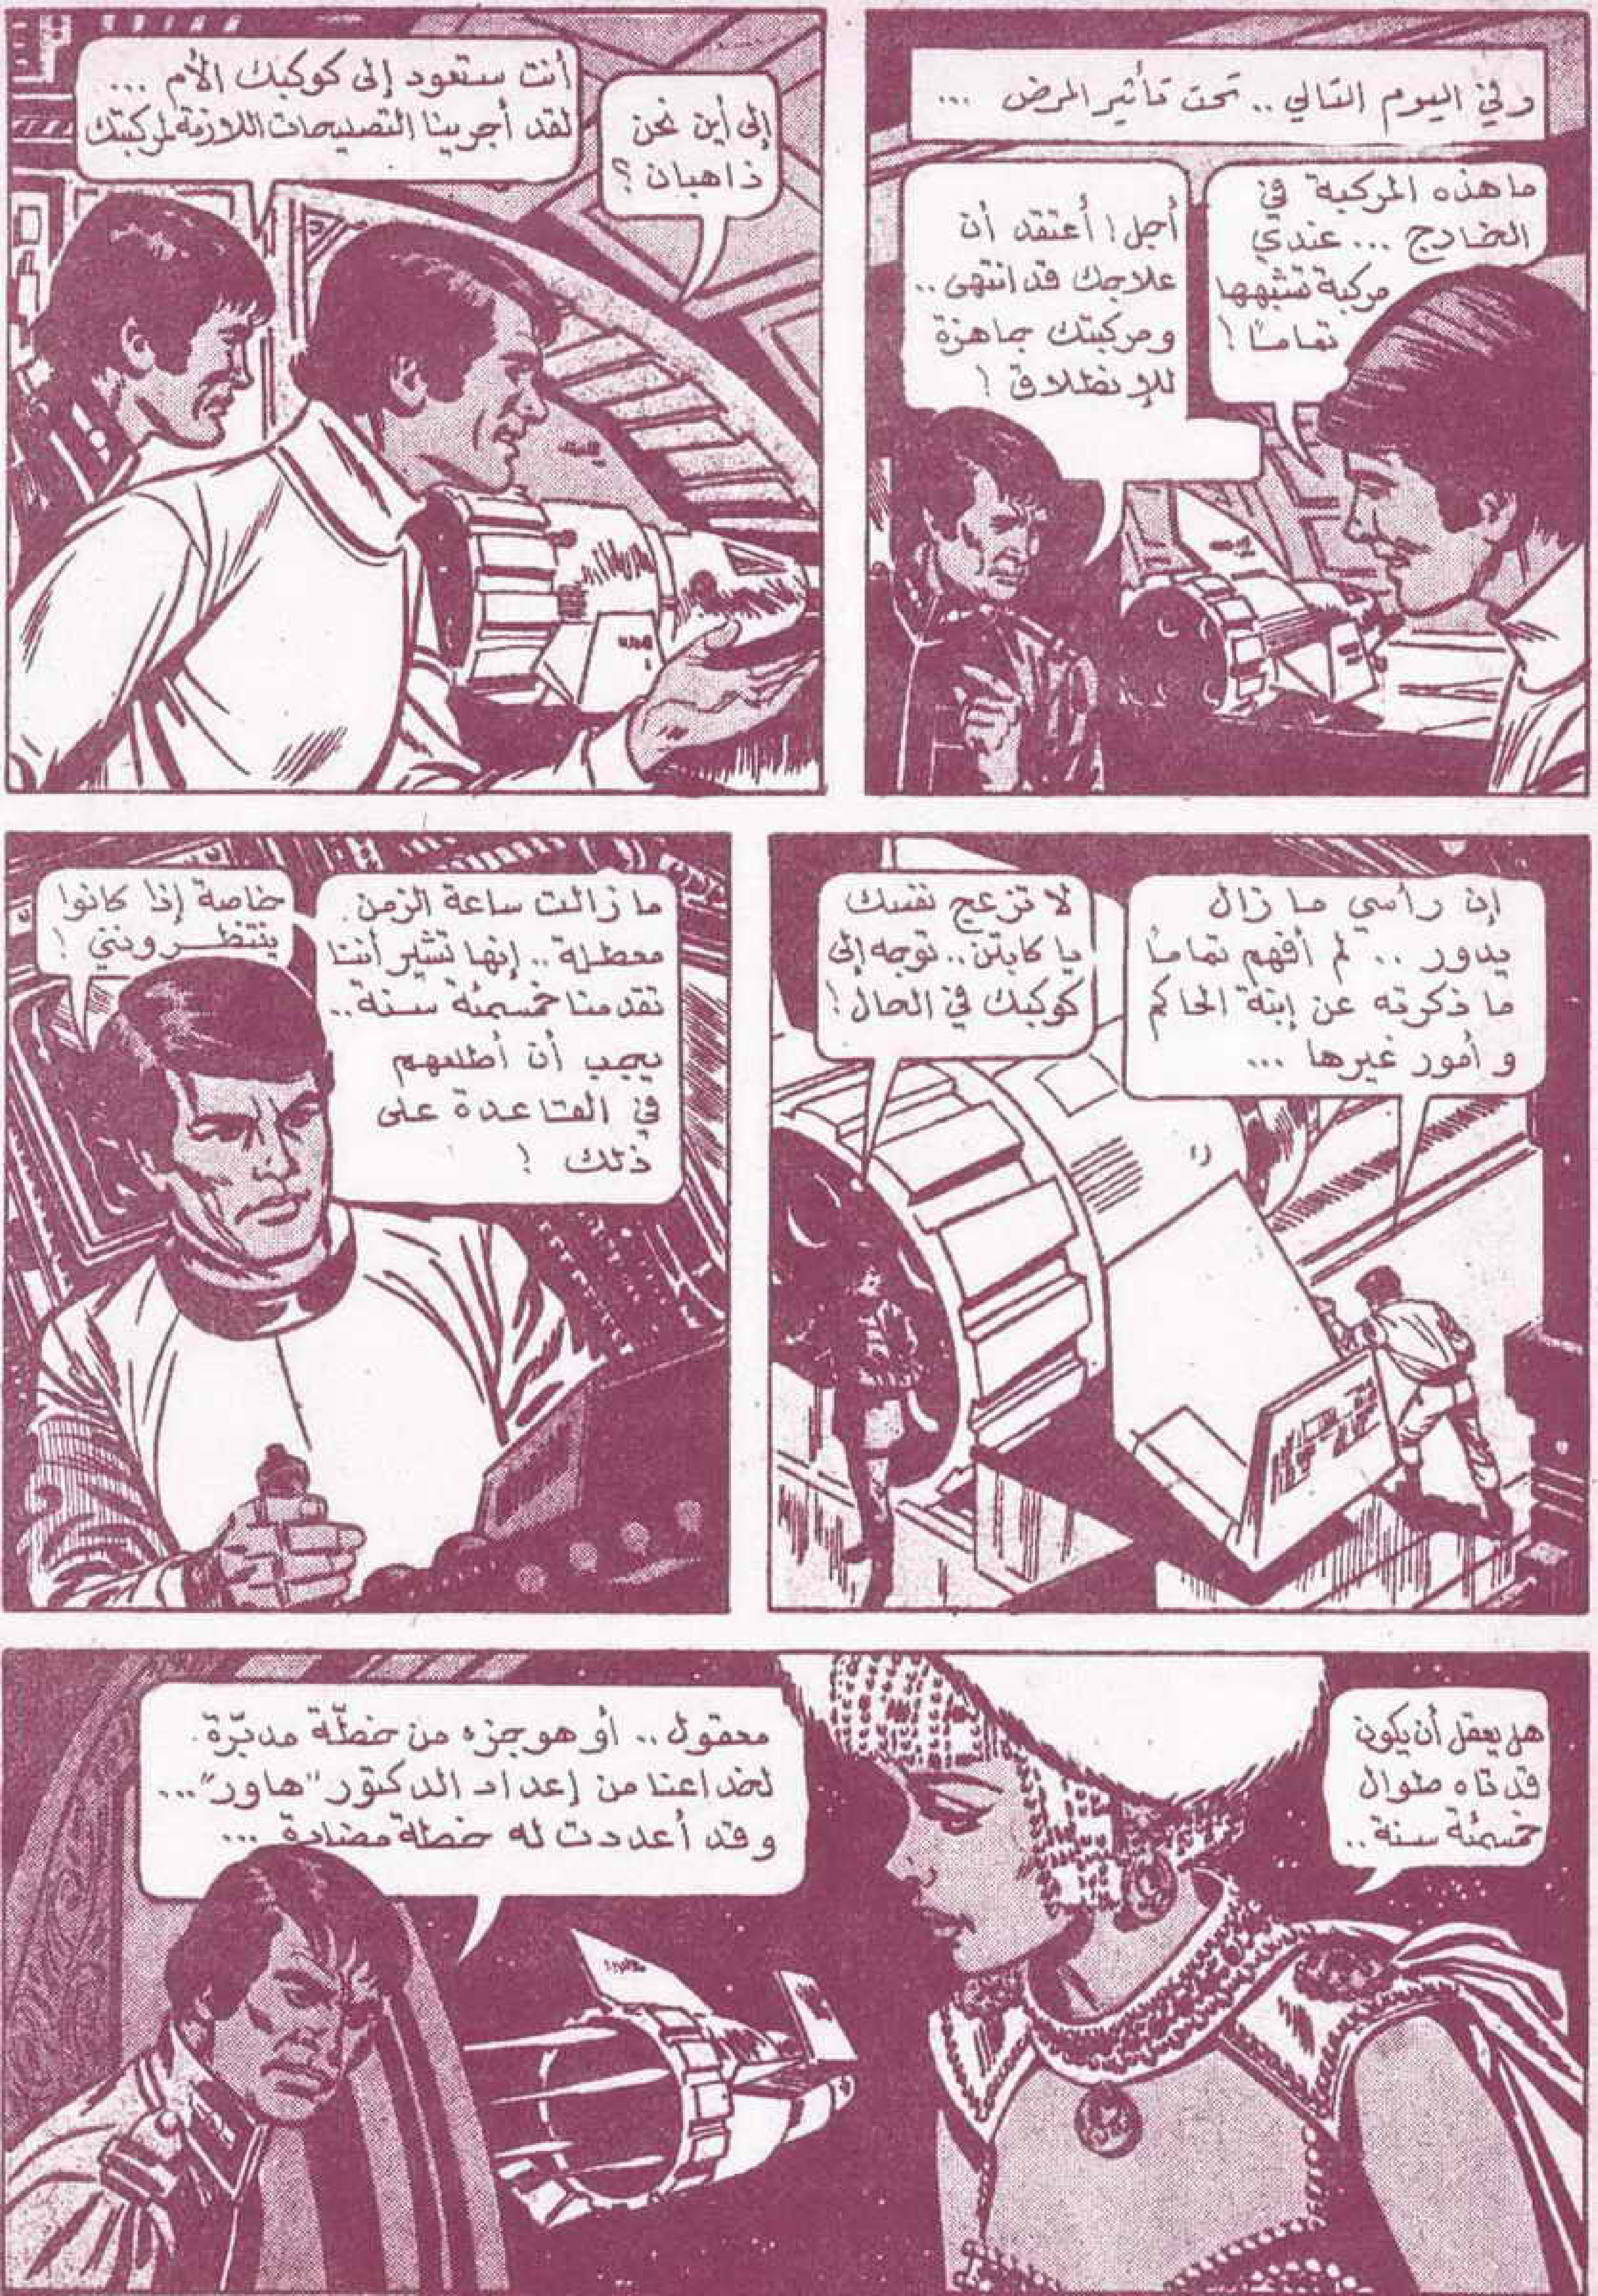 وفي اليوم التالي .. تحت تأثير المرض ...
ما هذه المركبة في
الخارج ... عندي
مركبة تشبهها
تماماً !
أجل ! أعتقد أن
علاجك قد انتهى ..
ومركبتك جاهزة
للإنطلاق !
إلى أين نحن
ذاهبان ؟
أنت ستعود إلى كوكبك الأم ...
لقد أجرينا التصليحات اللازمة لمركبتك
إن رأسي ما زال
يدور .. لم أفهم تماماً
ما ذكرته عن إبنة الحاكم
و أمور غيرها ...
لا تزعج نفسك
يا كابتن .. توجه إلى
كوكبك في الحال !
ما زالت ساعة الزمن
معطلة .. إنها تشير أننا
تقدمنا خمسمئة سنة ..
يجب أن أطلعهم
في القاعدة على
ذلك !
خاصة إذا كانوا
ينتظرونني !
هل يعقل أن يكون
قد تاه طوال
خمسمئة سنة ..
معقول .. أو هو جزء من خطّة مدبّرة
لخداعنا من إعداد الدكتور "هاور" ...
و قد أعددت له خطة مضادة ...